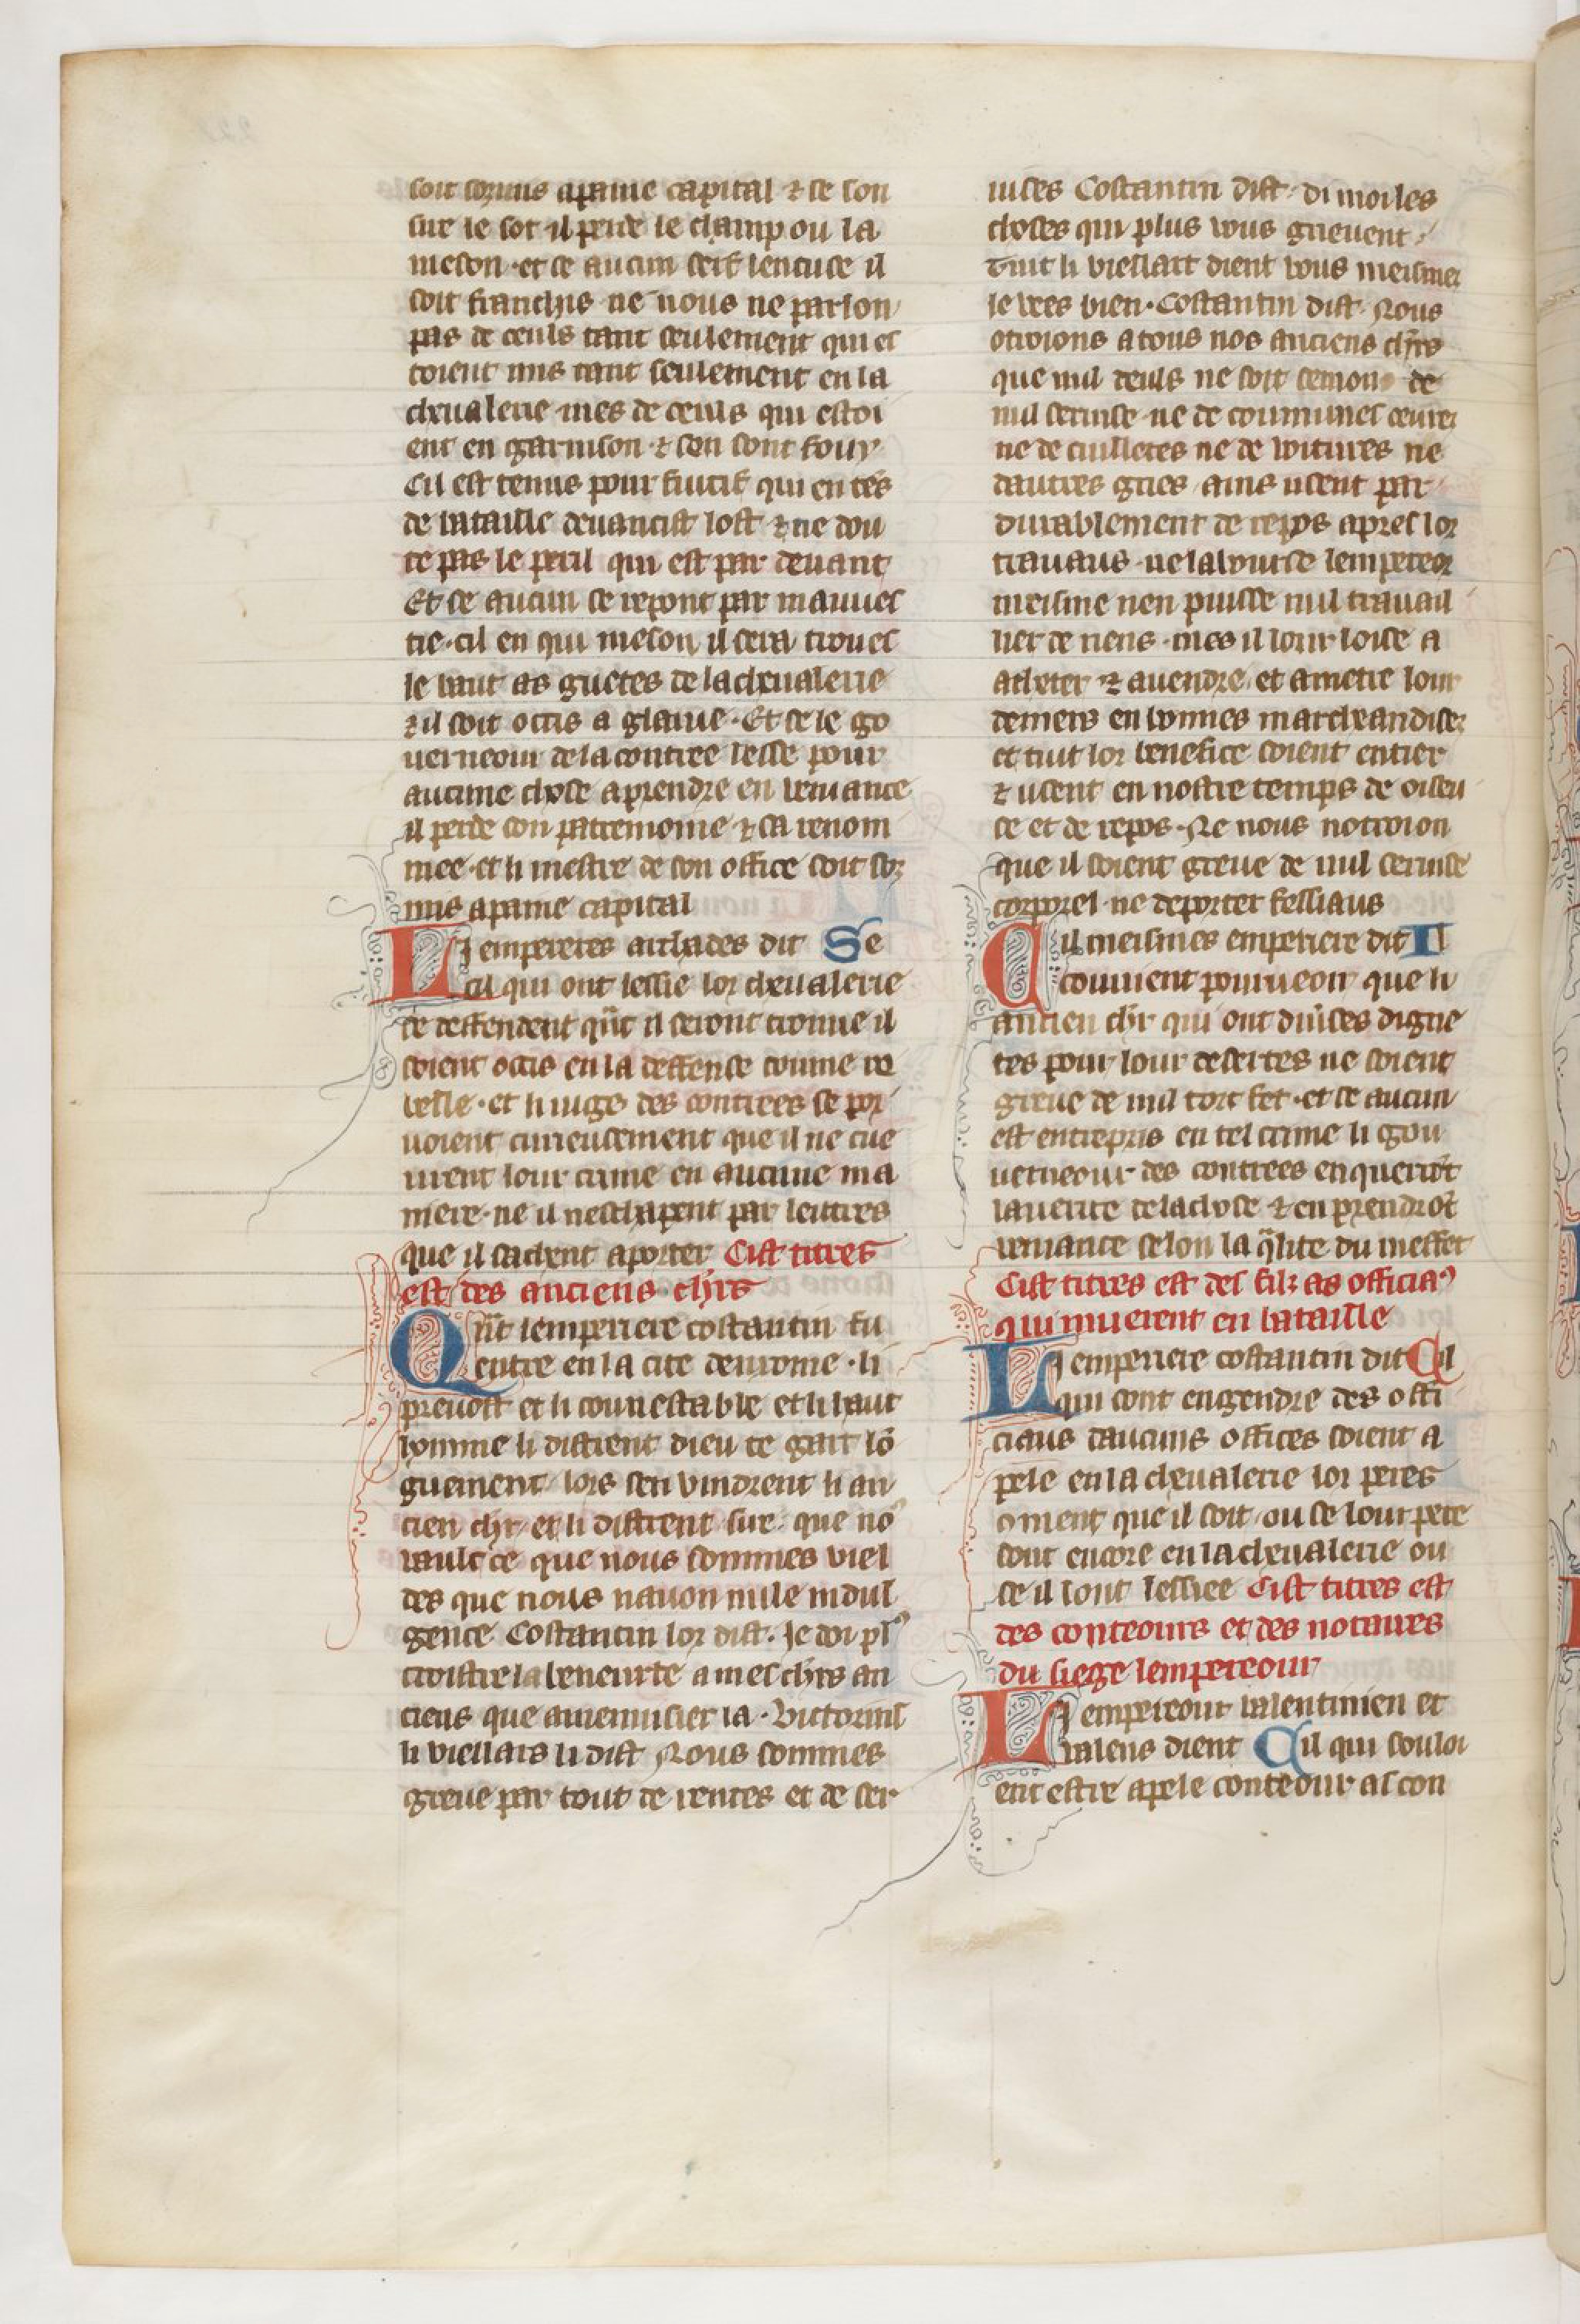 soit sozmis apaine capital ⁊ se son
sire le sot il perde le champ ou la
meson · et se aucun serf lencuse il
soit franchis ne nous ne parlon
pas de ceuls tant seulement qui es
toient mis tant seulement en la
cheualerie mes de ceuls qui estoi
ent en garnison ⁊ sen sont fouy
Cil est tenus pour fuitif qui en tẽs
de bataille deuancist lost ⁊ ne dou
te pas le peril qui est par deuant
Et se aucun se repont par mauues
tie · cil en qui meson il sera trouues
le baut as guetes de la cheualerie
⁊ il soit occis a glaiue · Et se le go
uerneour de la contree lesse pour
aucune chose aprendre en veniance
il perde son patremoine ⁊ sa renom
mee · et li mestre de son office soit soz
mis apaine capital
Li empereres archades dit Se
cil qui ont lessie lor cheualerie
se deffendent qñt il seront trouue il
soient occis en la deffense comme re
belle · et li iuge des contrees se por
uoient curieusement que il ne cue
urent lour crime en aucune ma
niere · ne il neschapent par lettres
que il sachent aporter Cist titres
est des anciens chlrs
Qñt lemperiere costantin fu
entre en la cite deurome · li
preuost et li connestable et li haut
homme li distrent dieu te gart lõ
guement lors sen vindrent li an
cien chlr et li distrent sire que no9
vault ce que nous sommes viel
des que nous nauon nule indul
gence Costantin lor dist · Je doi pl9
croistre la beneurte a mes chlrs an
ciens que amenusier la · Victorins
li viellars li dist Nous sommes
greue par tout de rentes et de ser
uises Costantin dist · di moi les
choses qui plus vous grieuent
Tuit li viellart dient vous meismes
le vees bien · Costantin dist · Nous
otroions a tous nos anciens chlrs
que nul deuls ne soit semons de
nul seruise ne de communes oeures
ne de cuilletes ne de voitures ne
dautres gries ains usent par
durablement de repos apres lor
trauaus · ne la bourse lempereor
meisme nen puisse nul trauail
lier de riens · mes il lour loise a
acheter ⁊ auendre et ametre lour
deniers en bonnes marcheandises
et tuit lor benefice soient entier
⁊ usent en nostre temps de oiseu
se et de repos · Ne nous notroion
que il soient greue de nul seruise
corporel · ne deporter fessiaus
Cil meismes emperiere dit Il
conuient pourueoir que li
ancien chlr qui ont diũses digne
tes pour lour desertes ne soient
greue de nul tort fet · et se aucun
est entrepris en tel crime li gou
uerneour des contrees enquerrõt
lauerite de la chose ⁊ en prendrõt
veniance selon la q̃lite du meffet
Cist titres est des filz as officia9
qui muerent en bataille
Li emperiere costantin dit Cil
qui sont engendre des offi
ciaus daucuns offices soient a
pele en la cheualerie lor peres
oment que il soit · ou se lour pere
sont encore en la cheualerie ou
se il lont lessiee Cist titres est
des conteours et des notaires
du siege lempereour
Li empereour valentinien et
valens dient Cil qui souloi
ent estre apele conteour as con